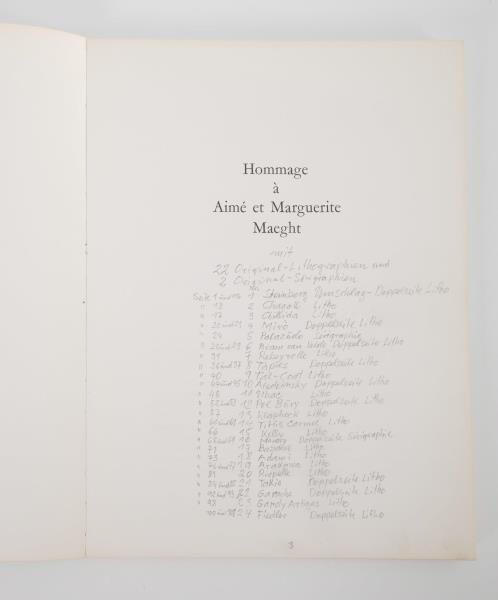 Hommage
à
Aimé et Marguerite
Maeght
mit
22 Original-Lithographien und
2 Original-Serigraphien
Seite 1 Steinberg Umschlag-Doppelseite Litho
" 13 2 Chagall Litho
" 17 3 Chillida Litho
4 Miró Doppelseite Litho
" 24 5 Palazuelo Serigraphie
6 Bram van Velde Doppelseite Litho
" 31 7 Rebeyrolle Litho
8 Tapies Doppelseite Litho
" 40 9 Tal-Coat Litho
10 Doppelseite Litho
" 48 11 Ubac Litho
12 Pol Bury Doppelseite Litho
" 57 13 Klapheck Litho
14 Titus Carmel Litho
" 66 15 Kelly Litho
16 Doppelseite Serigraphie
" 71 17 Litho
" 73 18 Adami Litho
19 Arakawa Litho
" 81 20 Riopelle Litho
21 Takis Doppelseite Litho
22 Garache Doppelseite Litho
" 98 23 Gardy Artigas Litho
24 Fiedler Doppelseite Litho
3